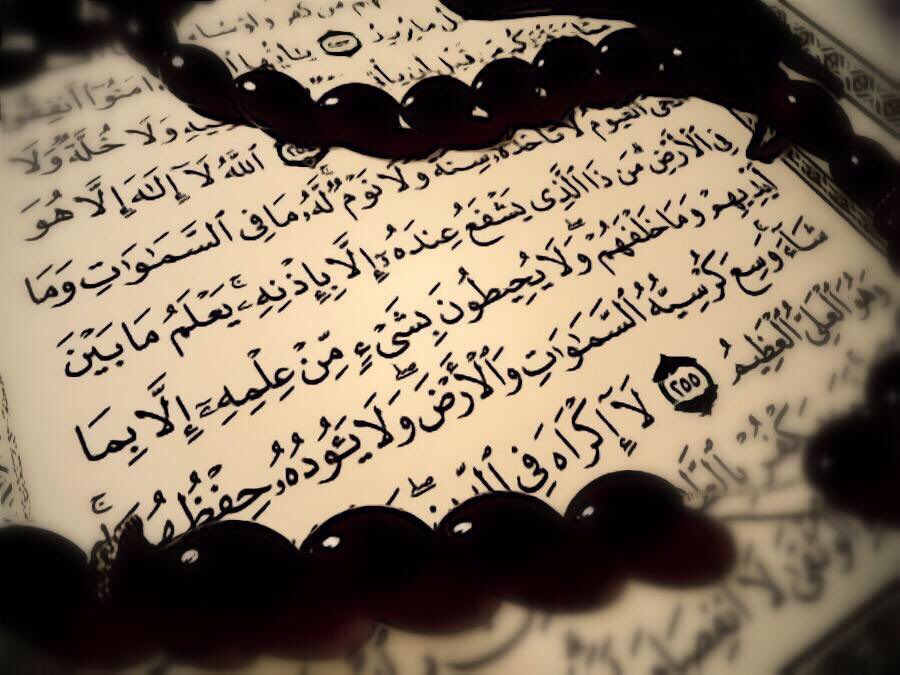 مَن كَفَرَ وَلَوْ شَآءَ
مَا يُرِيدُ ٢٥٣
ءَامَنُوٓا۟ أَنفِقُوا۟
مِّن قَبْلِ أَن
وَلَا خُلَّةٌ وَلَا
ٱللَّهُ لَآ إِلَٰهَ إِلَّا هُوَ
ٱلْقَيُّومُ لَا تَأْخُذُهُۥ سِنَةٌ وَلَا نَوْمٌ لَّهُۥ مَا فِى ٱلسَّمَٰوَٰتِ وَمَا
فِى ٱلْأَرْضِ مَن ذَا ٱلَّذِى يَشْفَعُ عِندَهُۥٓ إِلَّا بِإِذْنِهِۦ ۚ يَعْلَمُ مَا بَيْنَ
أَيْدِيهِمْ وَمَا خَلْفَهُمْ ۖ وَلَا يُحِيطُونَ بِشَىْءٍ مِّنْ عِلْمِهِۦٓ إِلَّا بِمَا
شَآءَ ۚ وَسِعَ كُرْسِيُّهُ ٱلسَّمَٰوَٰتِ وَٱلْأَرْضَ ۖ وَلَا يَـُٔودُهُۥ حِفْظُهُمَا ۚ
وَهُوَ ٱلْعَلِىُّ ٱلْعَظِيمُ ٢٥٥ لَآ إِكْرَاهَ فِى ٱلدِّينِ ۖ
لَا ٱنفِصَامَ